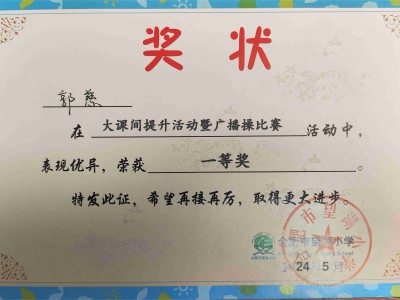 奖状
郭慈
在 大课间提升活动暨广播操比赛 活动中，
表现优异，荣获 一等奖 。
特发此证，希望再接再厉，取得更大进步。
合肥市望湖小学
2024年5月